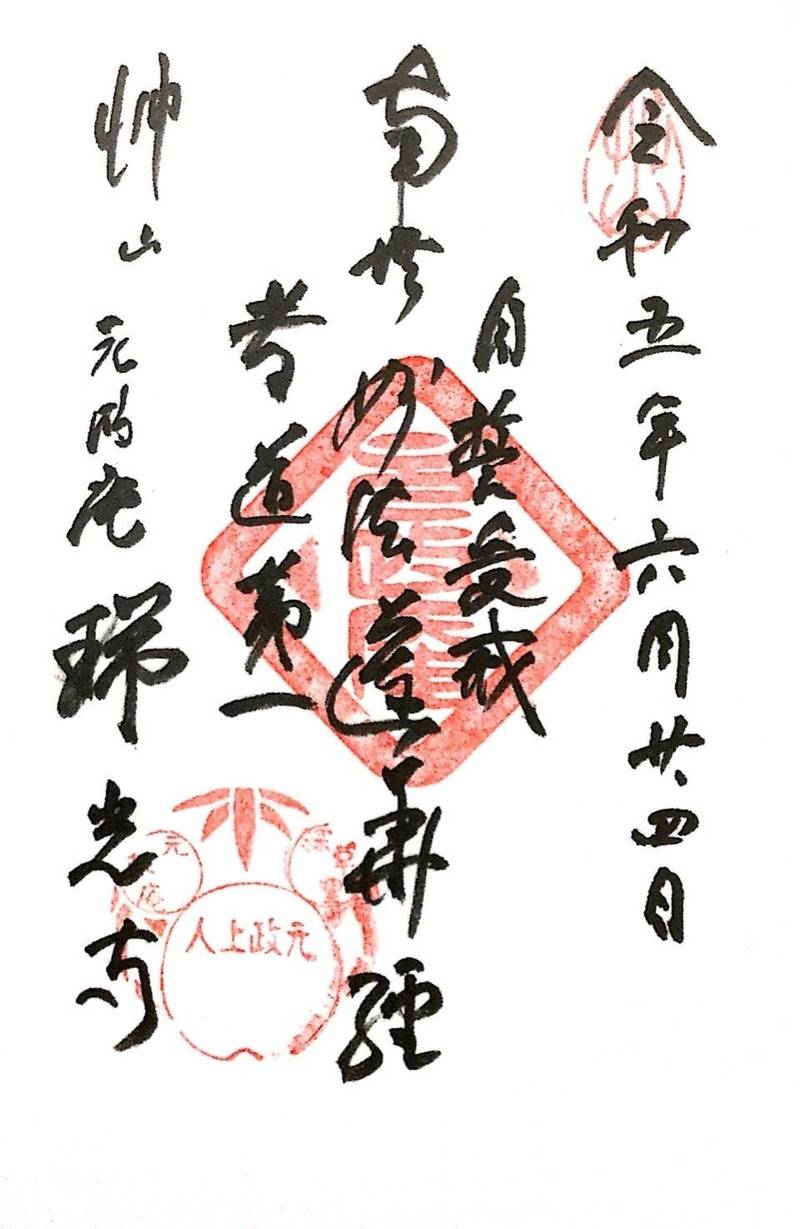 令和五年六月廿四日
自誓受戒
南無妙法蓮華經
孝道第一
艸山 元政庵 瑞光寺
元政上人